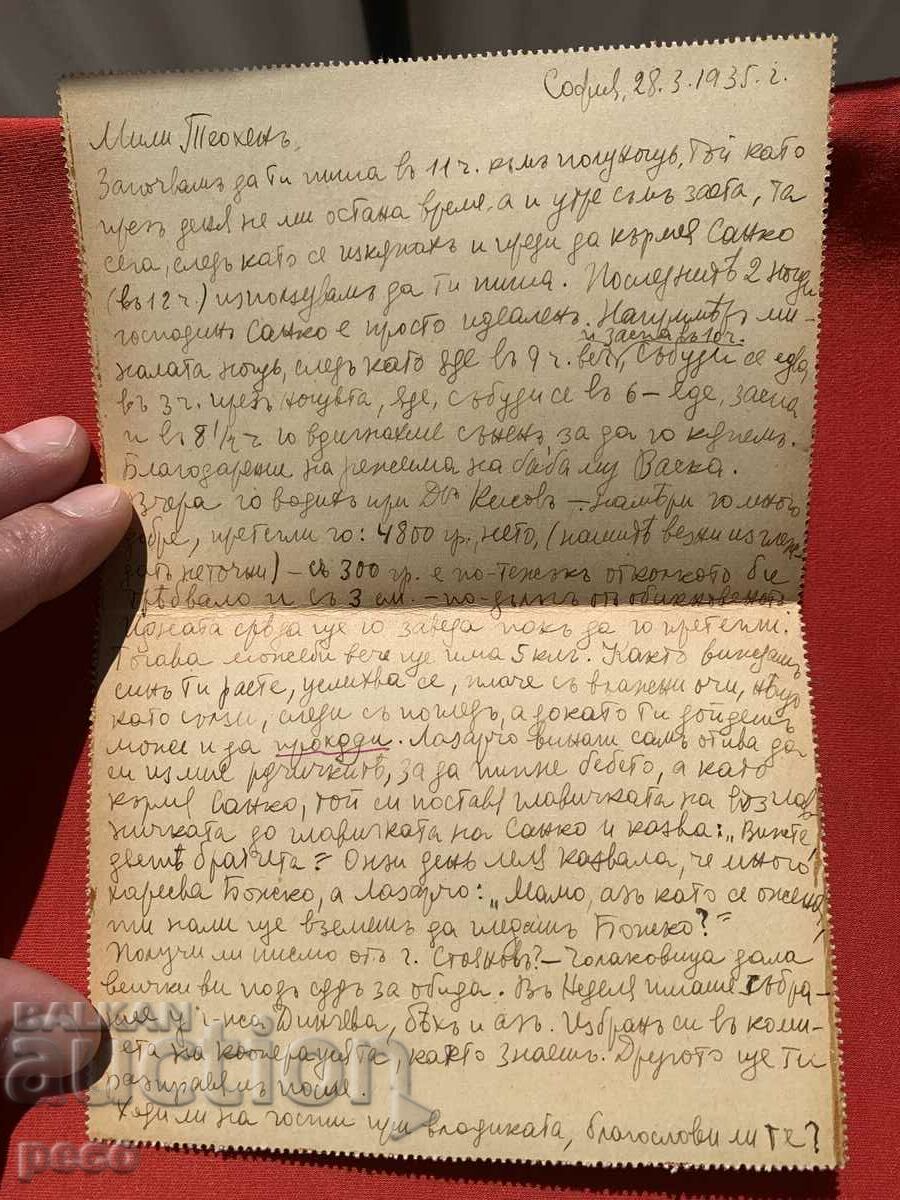 София, 28.3.1935 г.
Мили
Започвамъ да ти пиша въ 11 ч. къмъ полунощь, тъй като
презъ деня не ми остана време, а и утре съмъ заета, та
сега, следъ като се изкѫпахъ и преди да кърмя Санко
(въ 12 ч.) използувамъ да ти пиша. Последнитѣ 2 нощи
господинъ Санко е просто идеаленъ. Напримѣръ ми-
и заспа въ 10 ч.
налата нощь, следъ като яде въ 9 ч. веч., събуди се едва
въ 3 ч. презъ нощьта, яде, събуди се въ 6 – яде, заспа
и въ 8 1/2 ч го вдигнахме съненъ за да го кѫпемъ.
Благодарение на режима на баба му Васка.
Вчера го водихъ при Дръ Кисовъ – намѣри го много
добре, претегли го: 4800 гр. нето, (нашитѣ везни изглеж-
датъ неточни) – съ 300 гр. е по-тежъкъ отколкото би
трѣбвало и съ 3 см. – по-дълъгъ отъ обикновеното
Идната срѣда ще го заведа пакъ да го претегли.
Тогава може би вече ще има 5 клг. Както виждашъ
синъ ти расте, усмихва се, плаче съ влажни очи,
като сълзи, следи съ погледъ, а докато ти дойдешъ
може и да проходи. Лазарчо винаги самъ отива да
си измие рѫчичкитѣ, за да пипне бебето, а като
кърмя Санко, той си поставя главичката на възглав-
ничката до главичката на Санко и казва: „Вижте,
дветѣ братчета“ Онзи день леля казвала, че много
харесва Божко, а Лазарчо: „Мамо, азъ като се оженя,
ти нали ще вземешъ да гледашъ Божко?“
Получи ли писмо отъ г. Стояновъ? – Чолаковица дала
всички ви подъ сѫдъ за обида. Въ Неделя имаше събра-
ние у г-жа Динчева, бѣхъ и азъ. Избранъ си въ коми-
тета на кооперацията, както знаешъ. Другото ще ти
разправямъ после.
Ходи ли на гости при владиката, благослови ли те?
BALKAN
auction
peco